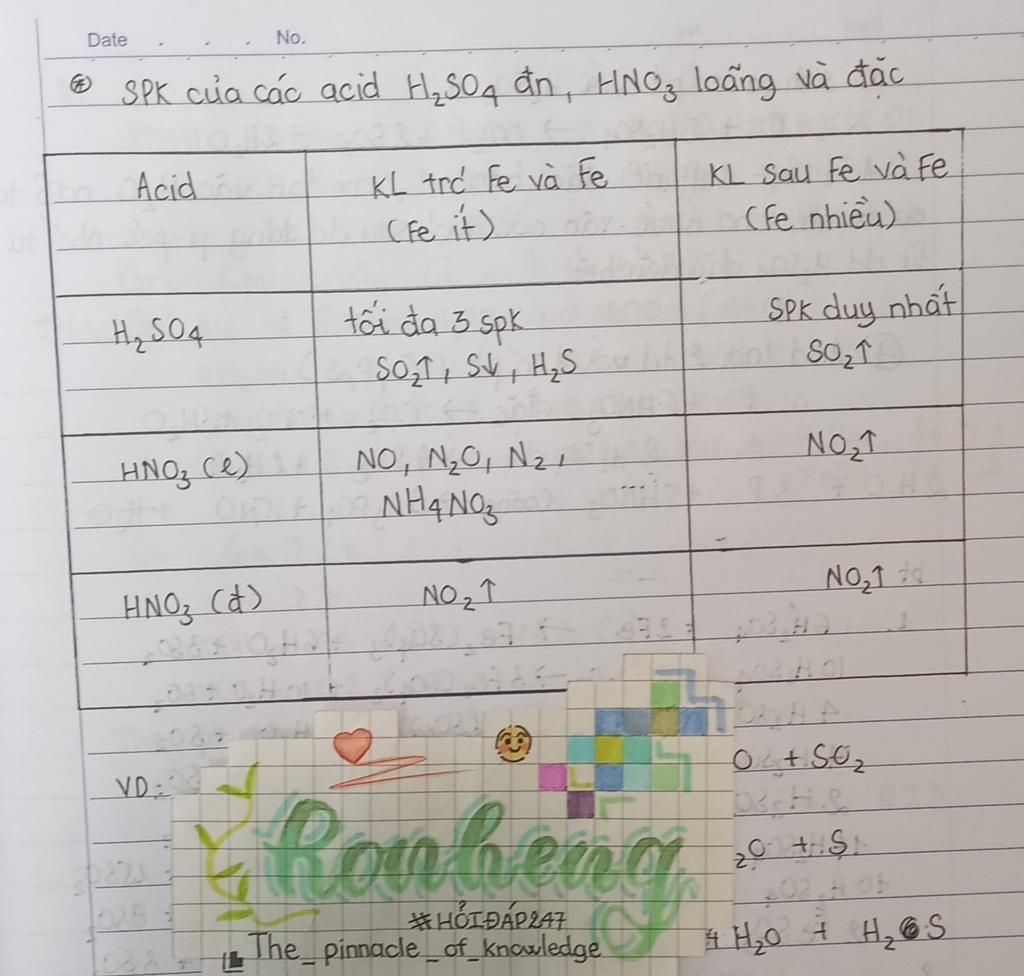 Date . . . No.
⊛ SPK của các acid H₂SO₄ đn, HNO₃ loãng và đặc
Acid
KL trć Fe và Fe
(Fe ít)
KL sau Fe và Fe
(Fe nhiều)
H₂SO₄
tối đa 3 spk
SO₂↑, S↓, H₂S
SPK duy nhất
SO₂↑
HNO₃ (l)
NO, N₂O, N₂, ...
NH₄NO₃
NO₂↑
HNO₃ (đ)
NO₂↑
NO₂↑
VD:
O + SO₂
₂O + S
4 H₂O + H₂S
Ronheng
#HỎIĐÁP247
The_pinnacle_of_knowledge